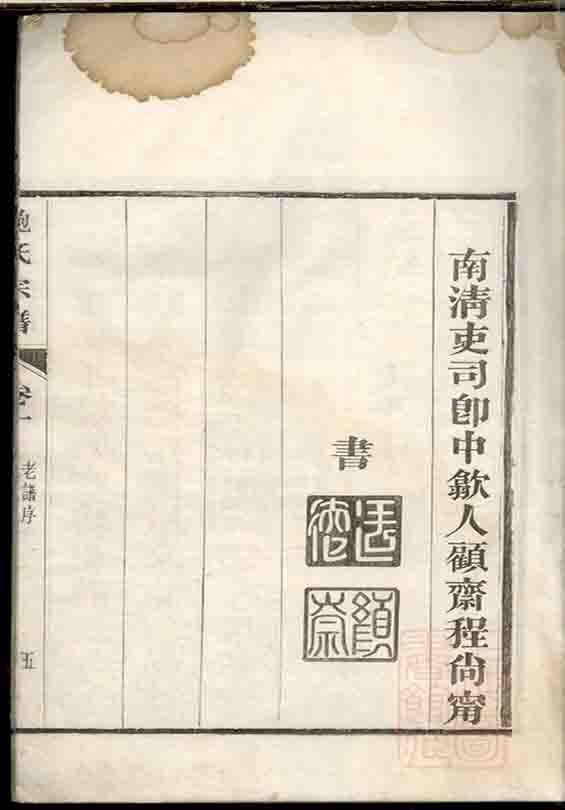 南清吏司郎中歙人顧齋程尚甯
書
鮑氏宗譜
卷一
老譜序
五